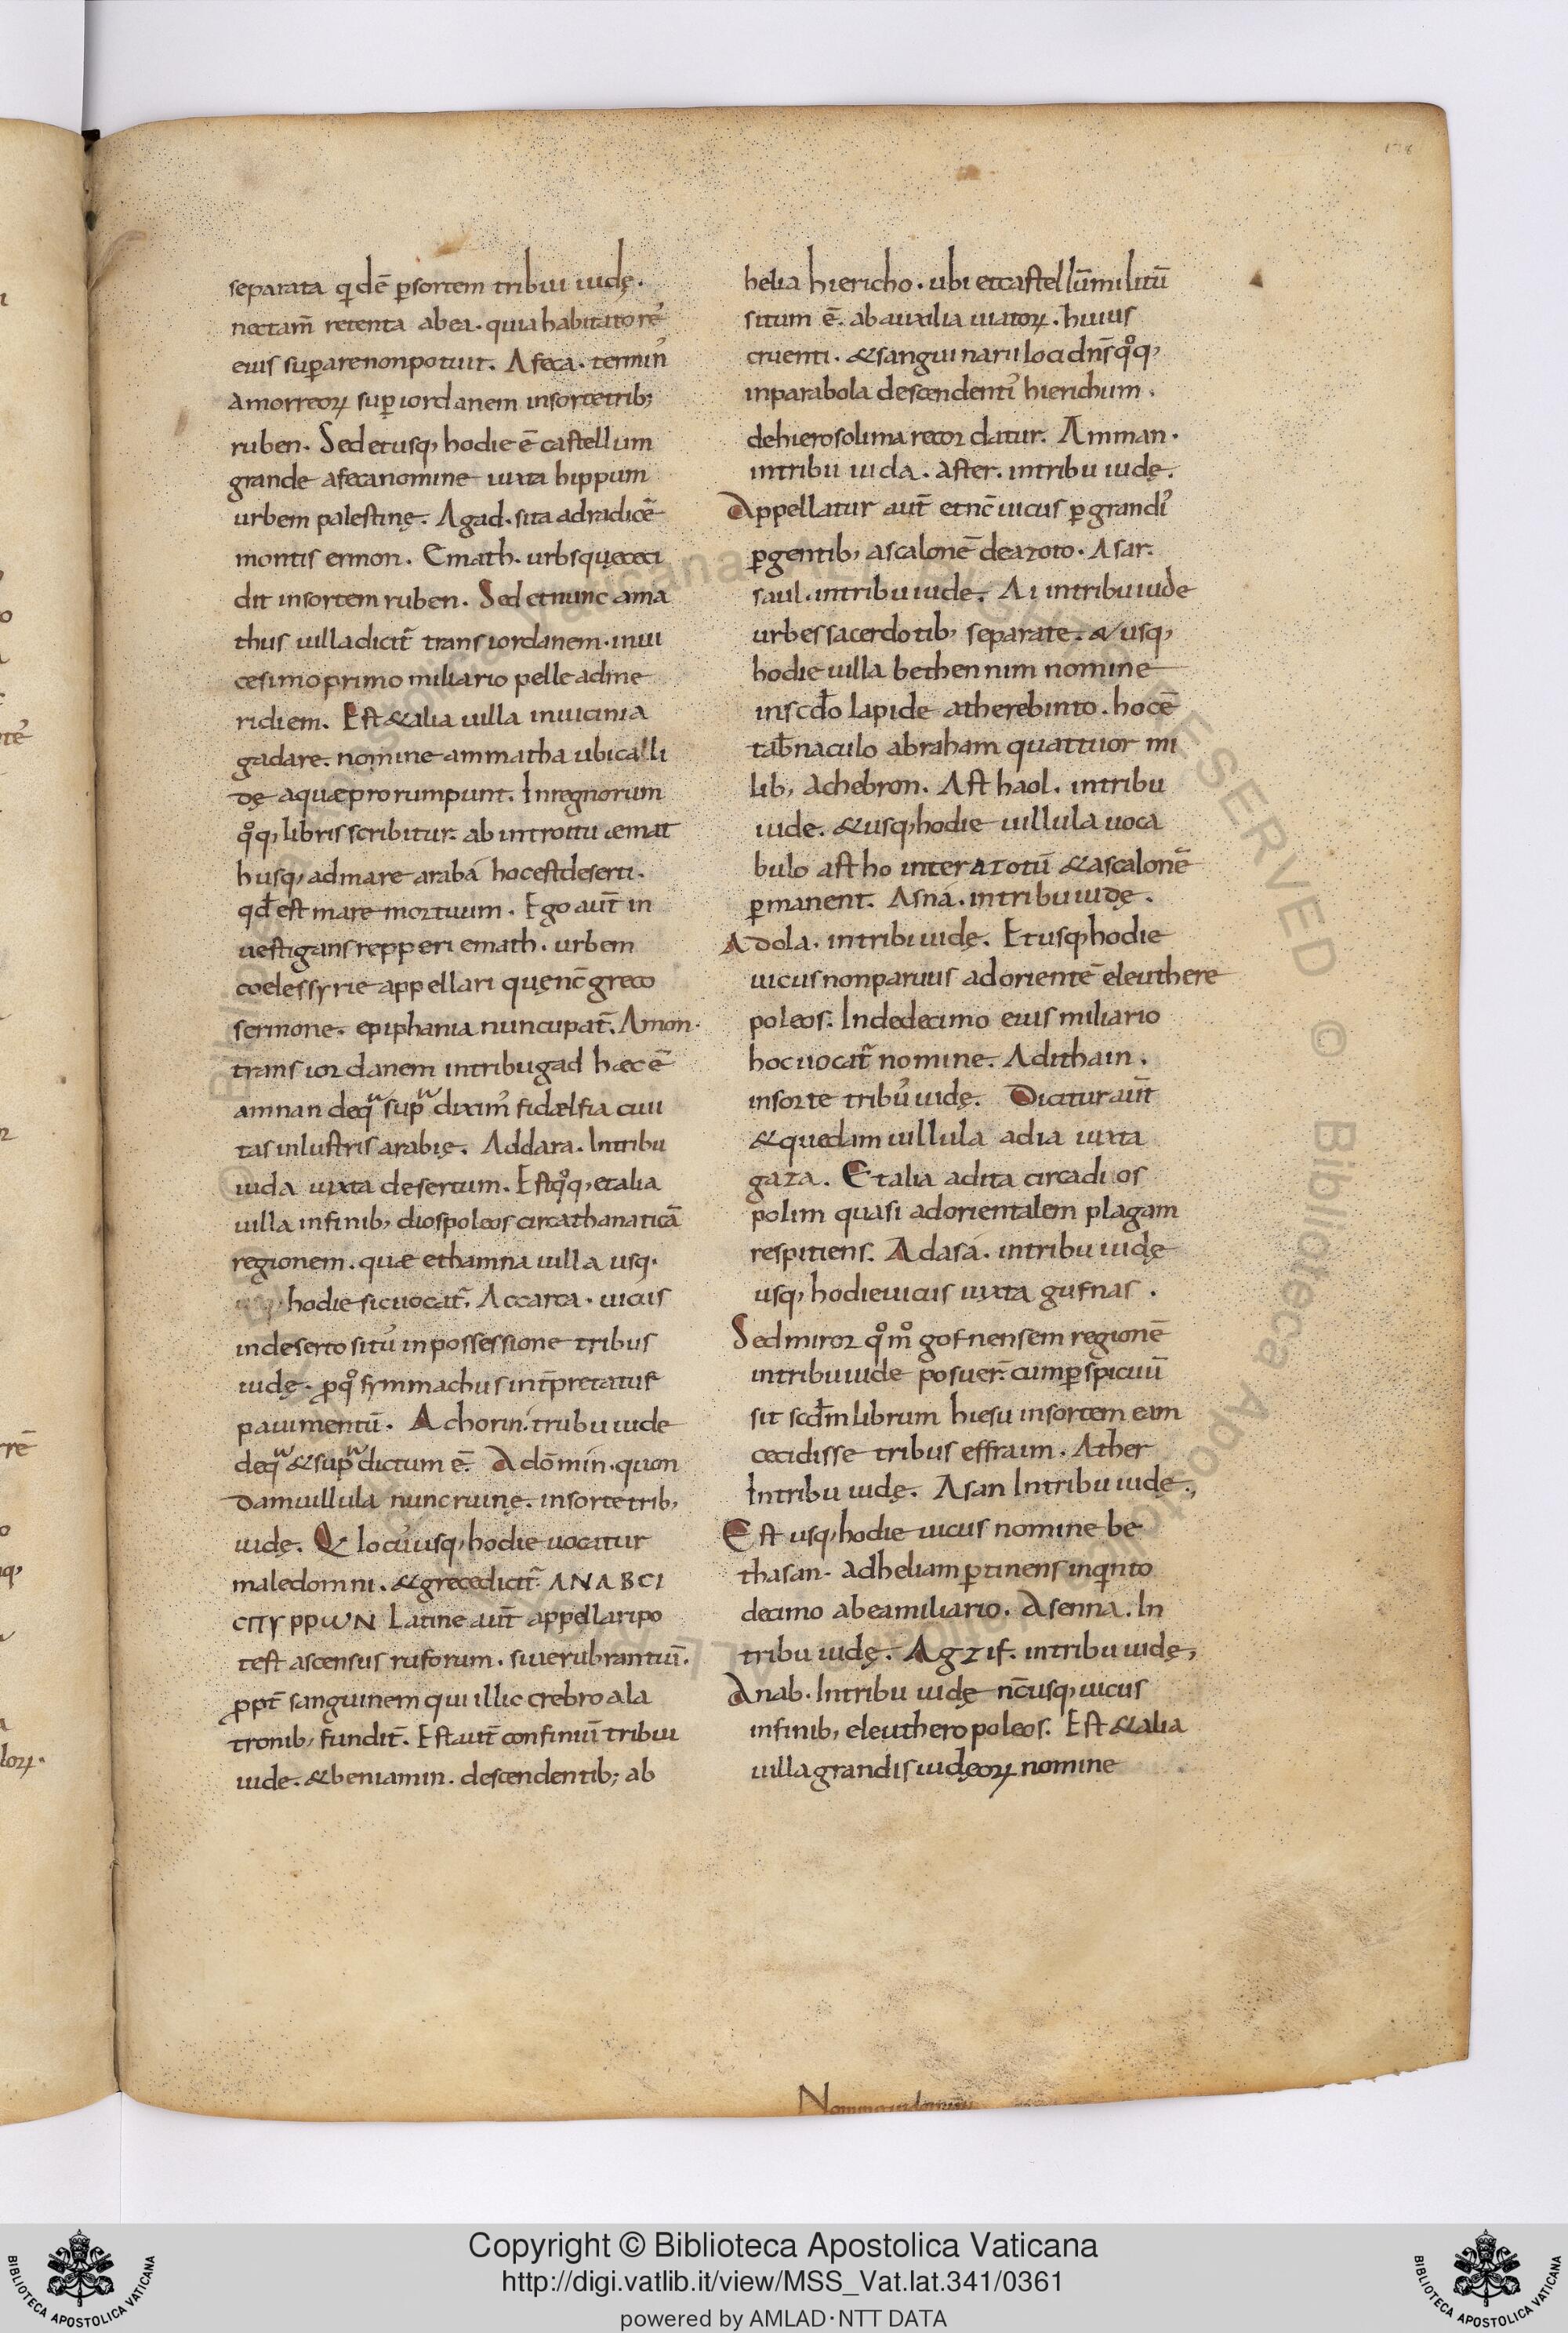 separata qdē ꝑsortem tribui iudę.
nectam̄ retenta abea. quia habitatorē
eius suꝑarenonpotuit. Afeca. termin᾽
amorreoꝝ suꝑiordanem insortetrib;
ruben. Sed etusq, hodie ē castellum
grande afecanomine iuxta hippum
urbem palestinę. Agad. sita adradicē
montis ermon. Emath. urbsquęceci
dit insortem ruben. Sed etnunc ama
thus uilladicit᷑ trans iordanem. inui
cesimoprimo miliario pelle adme
ridiem. Est &alia uilla inuicinia
gadare. nomine ammatha ubicalli
dę aquæprorumpunt. Inregnorum
qͦq, libris scribitur. ab introitu æmat
husq, admare arabá hocestdeserti.
qđ est mare mortuum. Ego aut̄ in
uestigans repperi emath. urbem
coelessyrie appellari quęnc̄ greco
sermone. epiphania nuncupat᷑. Amon.
trans iordanem intribugad hæc ē
amnan deqᵃ supᵃ dixim᾽ fidælfia ciui
tas inlustris arabię. Addara. Intribu
iuda iuxta desertum. Estqͦq, etalia
uilla infinib, diospoleos circathanaticā
regionem. quæ ethamna uilla usq.
usq, hodie sicuocat᷑. Accarca. uicus
indeserto situ᾽ inpossessione tribus
iudę. ꝓqͦ symmachus int̄pretatur
pauimentū. Achorin. trubu iude
deqᵃ &supᵃ dictum ē. Adōmín. quon
damuillula nunc ruinę. insorte trib,
iudę. & locu᾽usq, hodie uocatur
maledomni. &grecedicit᷑. ANABCI
CΠΥΡΡωN Latine aut̄ appellaripo
test ascensus ruforum. siuerubrantiū.
ꝓpt̄ sanguinem qui illic crebro ala
tronib, fundit᷑. Estaut̄ confiniū tribui
iude. &beniamin. descendentib; ab
helia hiericho. ubi etcastellūmilitū
situm ē. ab auxilia uiatoꝝ. huius
cruenti. &sanguinarii loci dn̄s qͦq,
inparabola descendenti᾽ hierichum.
dehierosolima recordatur. Amman.
intribu iuda. aster. intribu iudę.
Appellatur aut̄ etnc̄ uicus ꝑgrandi᾽
ꝑgentib, ascalonē deazoto. Asar.
saul. intribu iude. Ai intribu iude
urbes sacerdotib, separate. & usq,
hodie uilla bethennim nomine
inscdo lapide atherebinto. hoc ē
tab̄naculo abraham quattuor mi
lib, achebron. Ast haol. intribu
iude. &usq,hodie uillula uoca
bulo astho interazotū &ascalonē
ꝑmanent. Asná. intribu iudę.
Adola. intribi iudę. Etusq,hodie
uicus nonparuus adorientē eleuthere
poleos. Indedecimo eius miliario
hoc uocat᷑ nomine. Adithain.
insorte tribu᾽ iudę. Dicitur aut̄
&quedam uillula adia iuxta
gaza. Etalia adita circadios
polim quasi adorientalem plagam
respitiens. Adasá. intribu iudę
usq, hodieuicus iuxta gufnas.
Sedmiror qͦmͦ gofnensem regionē
intribu iude posuer̄. cumꝑspicuū
sit scdm librum hiesu insortem eam
cecidisse tribus effraim. Ather
Intribu iudę. Asan Intribu iudę.,
Est usq, hodie uicus nomine be
thasan. adheliam ꝑtinens inqͥnto
decimo abeamiliario. Asenna. In
tribu iudę. Agzif. intribu iudę,
Anab. Intribu iudę nc̄usq, uicus
infinib, eleutheropoleos. Est &alia
uilla grandis iudęoꝝ nomine
© Biblioteca Apostolica Vaticana ALL RIGHTS RESERVED
Copyright © Biblioteca Apostolica Vaticana
http://digi.vatlib.it/view/MSS_Vat.lat.341/0361
powered by AMLAD·NTT DATA
BIBLIOTECA APOSTOLICA VATICANA
BIBLIOTECA APOSTOLICA VATICANA